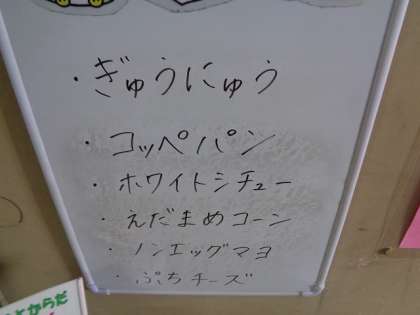 ・ぎゅうにゅう
・コッペパン
・ホワイトシチュー
・えだまめコーン
・ノンエッグマヨ
・ぷちチーズ
とからだ